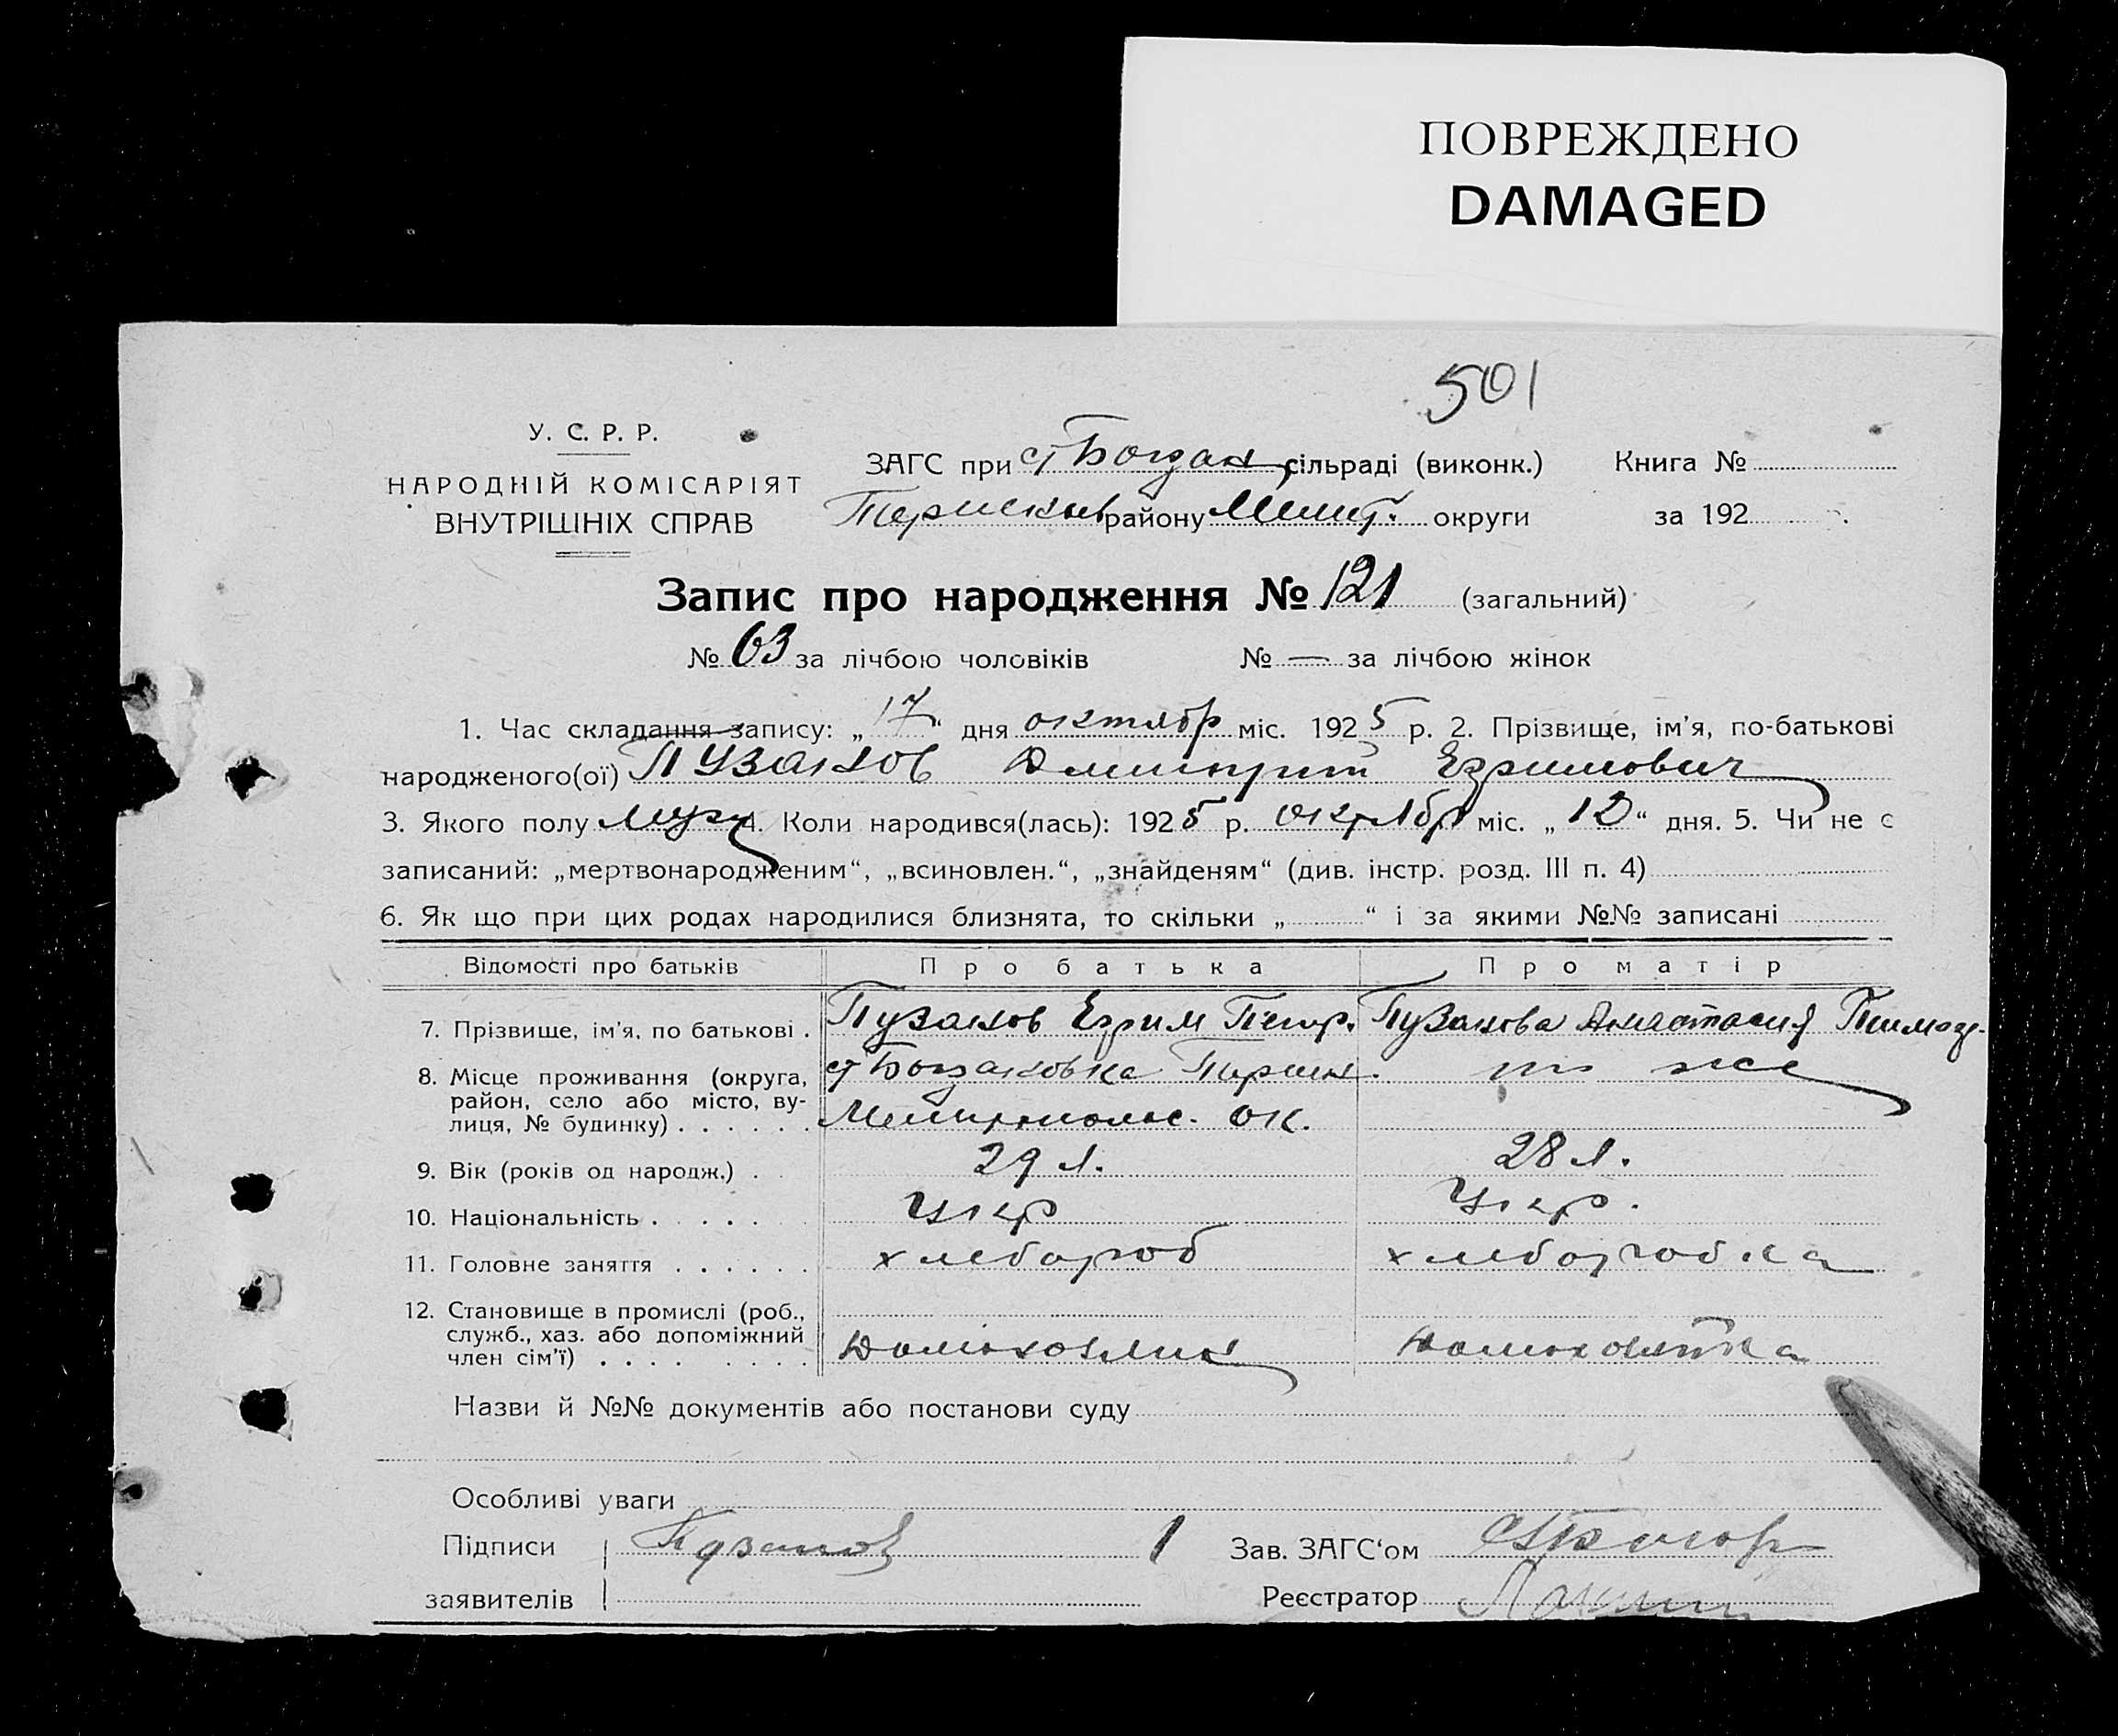 ПОВРЕЖДЕНО
DAMAGED
501
У. С. Р. Р.
НАРОДНІЙ КОМІСАРІЯТ
ВНУТРІШНІХ СПРАВ
ЗАГС при ст Богдан сільраді (виконк.) Книга №
району Мелит. округи за 192 .
Запис про народження № 121 (загальний)
№ 63 за лічбою чоловіків № — за лічбою жінок
1. Час складання запису: „ 17 “ дня октябр міс. 1925 р. 2. Прізвище, ім’я, по-батькові
народженого(ої) Пузанов Дмитрий Ефимович
3. Якого полу муж 4. Коли народився(лась): 1925 р. октябр міс. „ 12 “ дня. 5. Чи не є
записаний: „мертвонародженим“, „всиновлен.“, „знайденям“ (див. інстр. розд. III п. 4)
6. Як що при цих родах народилися близнята, то скільки „ “ і за якими №№ записані
Відомості про батьків Про батька Про матір
7. Прізвище, ім’я, по батькові . Пузанов Ефим Петр. Пузанова Анастасия
8. Місце проживання (округа, район, село або місто, вулиця, № будинку) . . . . . . ст Богдановка то же
Мелитополс. ок.
9. Вік (років од народж.) . 29 л. 28 л.
10. Національність . . . . . Укр Укр.
11. Головне заняття . . . . . . хлебороб хлеборобка
12. Становище в промислі (роб., служб., хаз. або допоміжний член сім’ї) . . . . . . . .
Назви й №№ документів або постанови суду
Особливі уваги
Підписи Пузанов 1 Зав. ЗАГС‘ом
заявителів Реєстратор